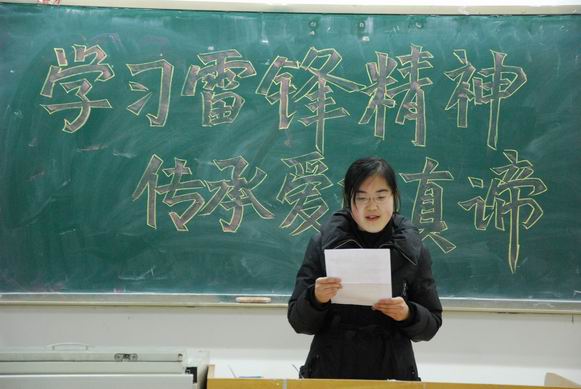 学习雷锋精神
传承爱真谛